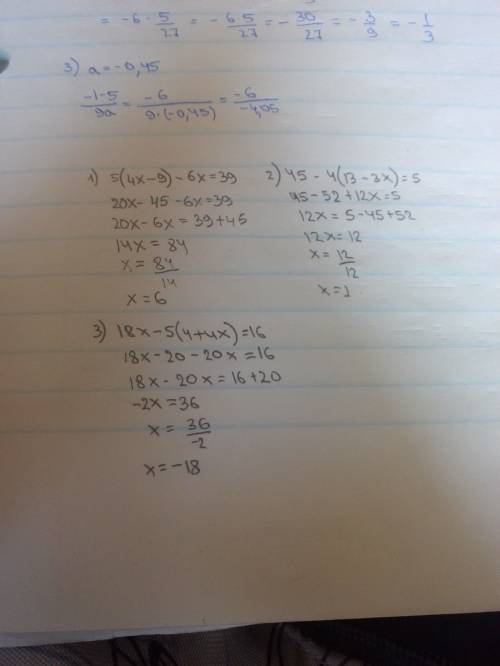 = -6 · 5/27 = -6 5/27 = - 30/27 = - 3/9 = - 1/3
3) a = -0,45
-1-5/9a = -6/9·(-0,45) = -6/-4,05
1) 5(4x-9)-6x=39
20x-45-6x=39
20x-6x=39+45
14x=84
x=84/14
x=6
2) 45-4(13-3x)=5
45-52+12x=5
12x=5-45+52
12x=12
x=12/12
x=1
3) 18x-5(4+4x)=16
18x-20-20x=16
18x-20x=16+20
-2x=36
x=36/-2
x=-18